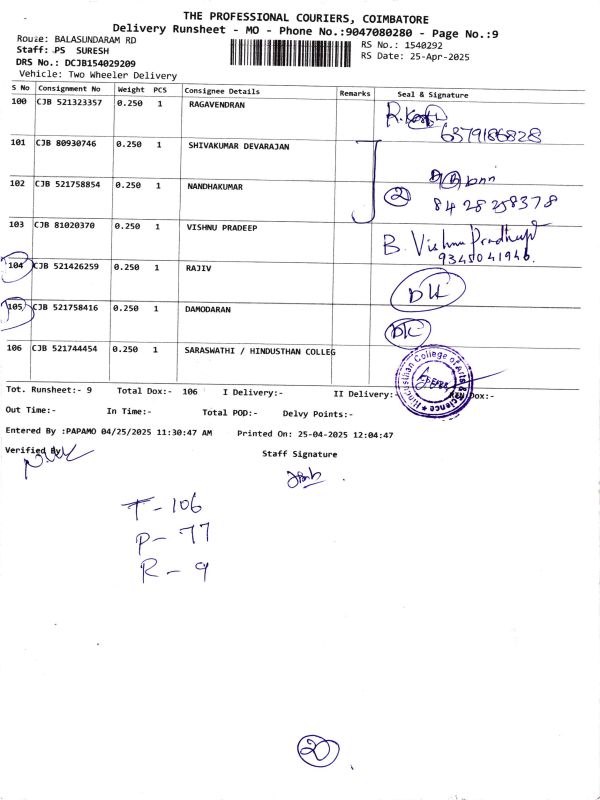 THE PROFESSIONAL COURIERS, COIMBATORE
Delivery Runsheet - MO - Phone No.:9047080280 - Page No.:9
Route: BALASUNDARAM RD
RS No.: 1540292
Staff: PS SURESH
RS Date: 25-Apr-2025
DRS No.: DCJB154029209
Vehicle: Two Wheeler Delivery
S No Consignment No Weight PCS Consignee Details Remarks Seal & Signature
100 CJB 521323357 0.250 1 RAGAVENDRAN
6379186828
101 CJB 80930746 0.250 1 SHIVAKUMAR DEVARAJAN
102 CJB 521758854 0.250 1 NANDHAKUMAR
2 8428258378
103 CJB 81020370 0.250 1 VISHNU PRADEEP B. Vishnu Pradeep
9345041946.
104 CJB 521426259 0.250 1 RAJIV
DK
105 CJB 521758416 0.250 1 DAMODARAN
DK
106 CJB 521744454 0.250 1 SARASWATHI / HINDUSTHAN COLLEG
Hindusthan College of Arts & Science
Tot. Runsheet:- 9 Total Dox:- 106 I Delivery:- II Delivery:- Dox:-
Out Time:- In Time:- Total POD:- Delvy Points:-
Entered By :PAPAMO 04/25/2025 11:30:47 AM Printed On: 25-04-2025 12:04:47
Verified By
Staff Signature
T - 106
P - 77
R - 9
2